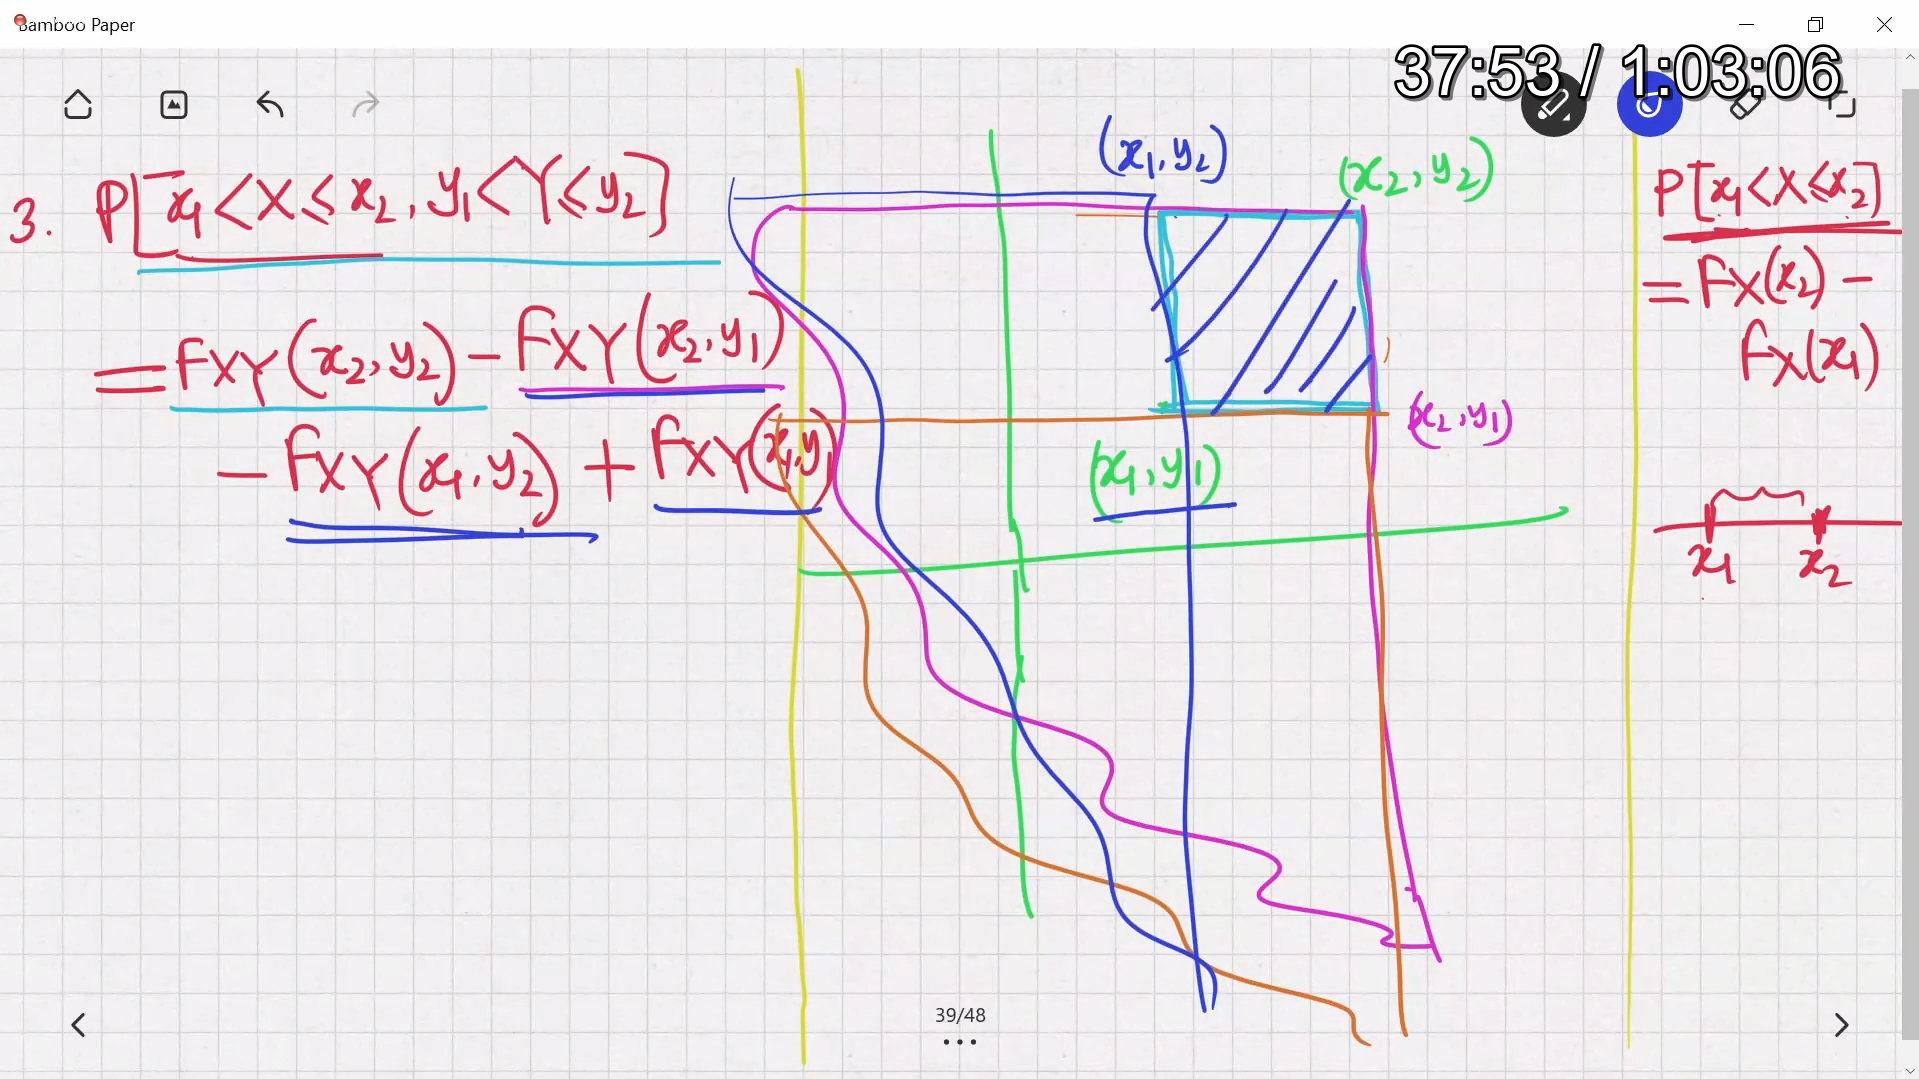 Bamboo Paper
37:53 / 1:03:06
3. P[x1 < X ≤ x2, y1 < Y ≤ y2]
= FXY(x2, y2) - FXY(x2, y1)
- FXY(x1, y2) + FXY(x1, y1)
(x1, y2)
(x2, y2)
(x2, y1)
(x1, y1)
P[x1 < X ≤ x2]
= FX(x2) -
FX(x1)
x1 x2
39/48